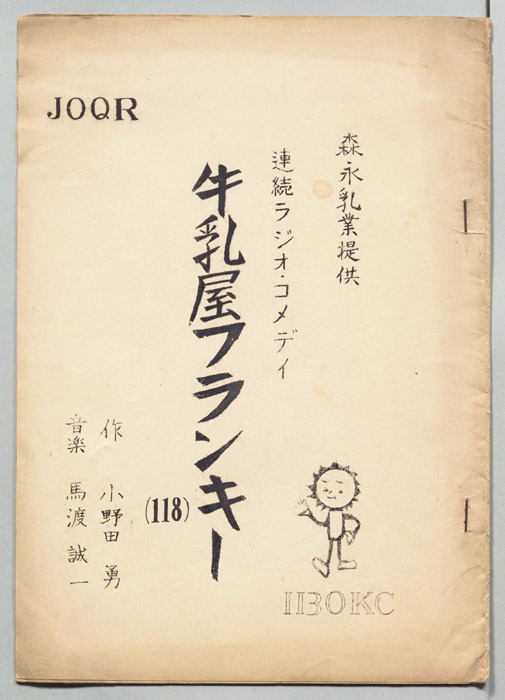 JOQR
森永乳業提供
連続ラジオ・コメディ
牛乳屋フランキー
(118)
作 小野田 勇
音楽 馬渡 誠一
1130KC